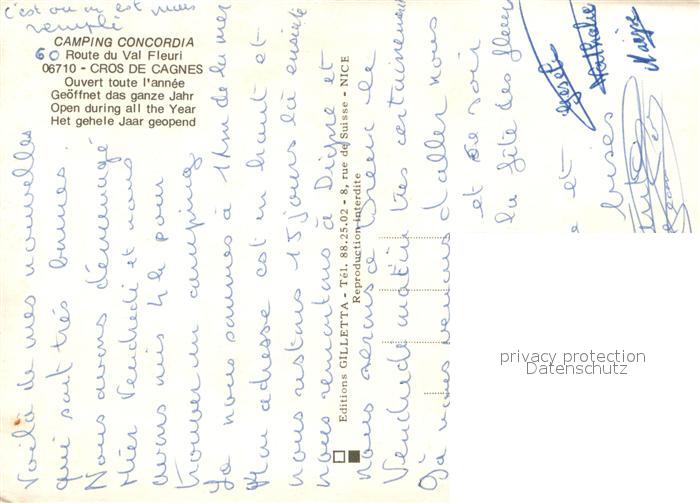 c'est ou on est mais
remplé
CAMPING CONCORDIA
60 Route du Val Fleuri
06710 - CROS DE CAGNES
Ouvert toute l'année
Geöffnet das ganze Jahr
Open during all the Year
Het gehele Jaar geopend
Voilà de mes nouvelles
qui sont très bonnes.
Nous avons déménagé
Hier Vendredi et nous
avons mis 4h pour
trouver un camping
Là nous sommes à 1 km de la mer
Mon adresse est en haut et
nous restons 15 jours là ensuite
nous remontons à Digne et
nous serons à le
Vendredi matin très certainement
Là nous venons d'aller nous
et ce soir
la fête des fleurs
et
bises
Gisèle
Nathalie
Editions GILLETTA - Tél. 88.25.02 - 8, rue de Suisse - NICE
Reproduction interdite
privacy protection
Datenschutz